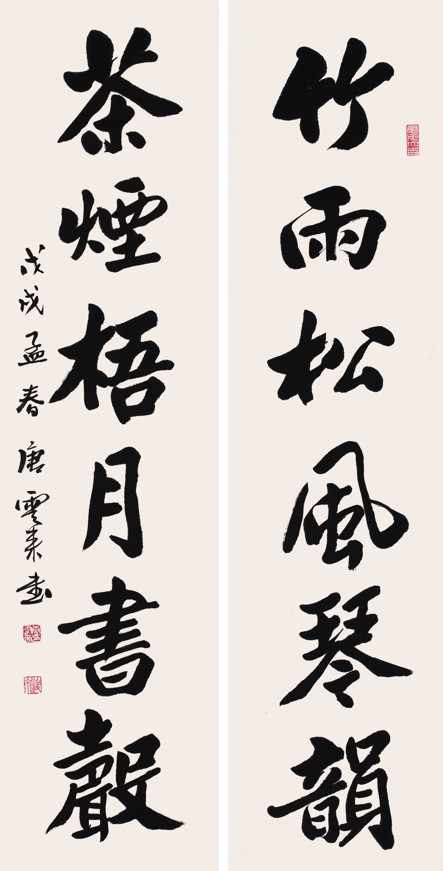 竹雨松風琴韻
茶煙梧月書聲
戊戌孟春唐雲来书